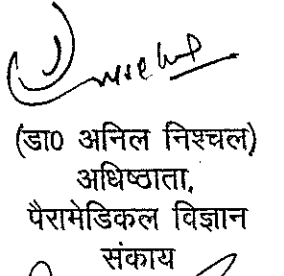 (डा0 अनिल निश्चल)
अधिष्ठाता,
पैरामेडिकल विज्ञान
संकाय